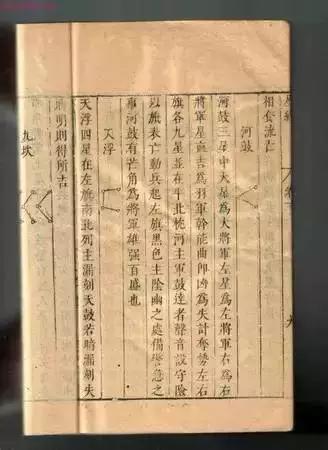 相套流亡
河鼓
河鼓三星中大星為大將軍左星為左將軍右為右
將軍星直吉為羽軍幹能曲卽凶為失計奪勢左右
旗各九星並在牛北枕河主軍鼓達者聲音設守險
以旗表亡動兵起左旗黑色主陰幽之處備警急之
事河鼓有芒角為將軍雄强百盛也
天浮
天浮四星在左旗南北列主漏刻天鼓若暗漏刻失
明則得所吉
九坎